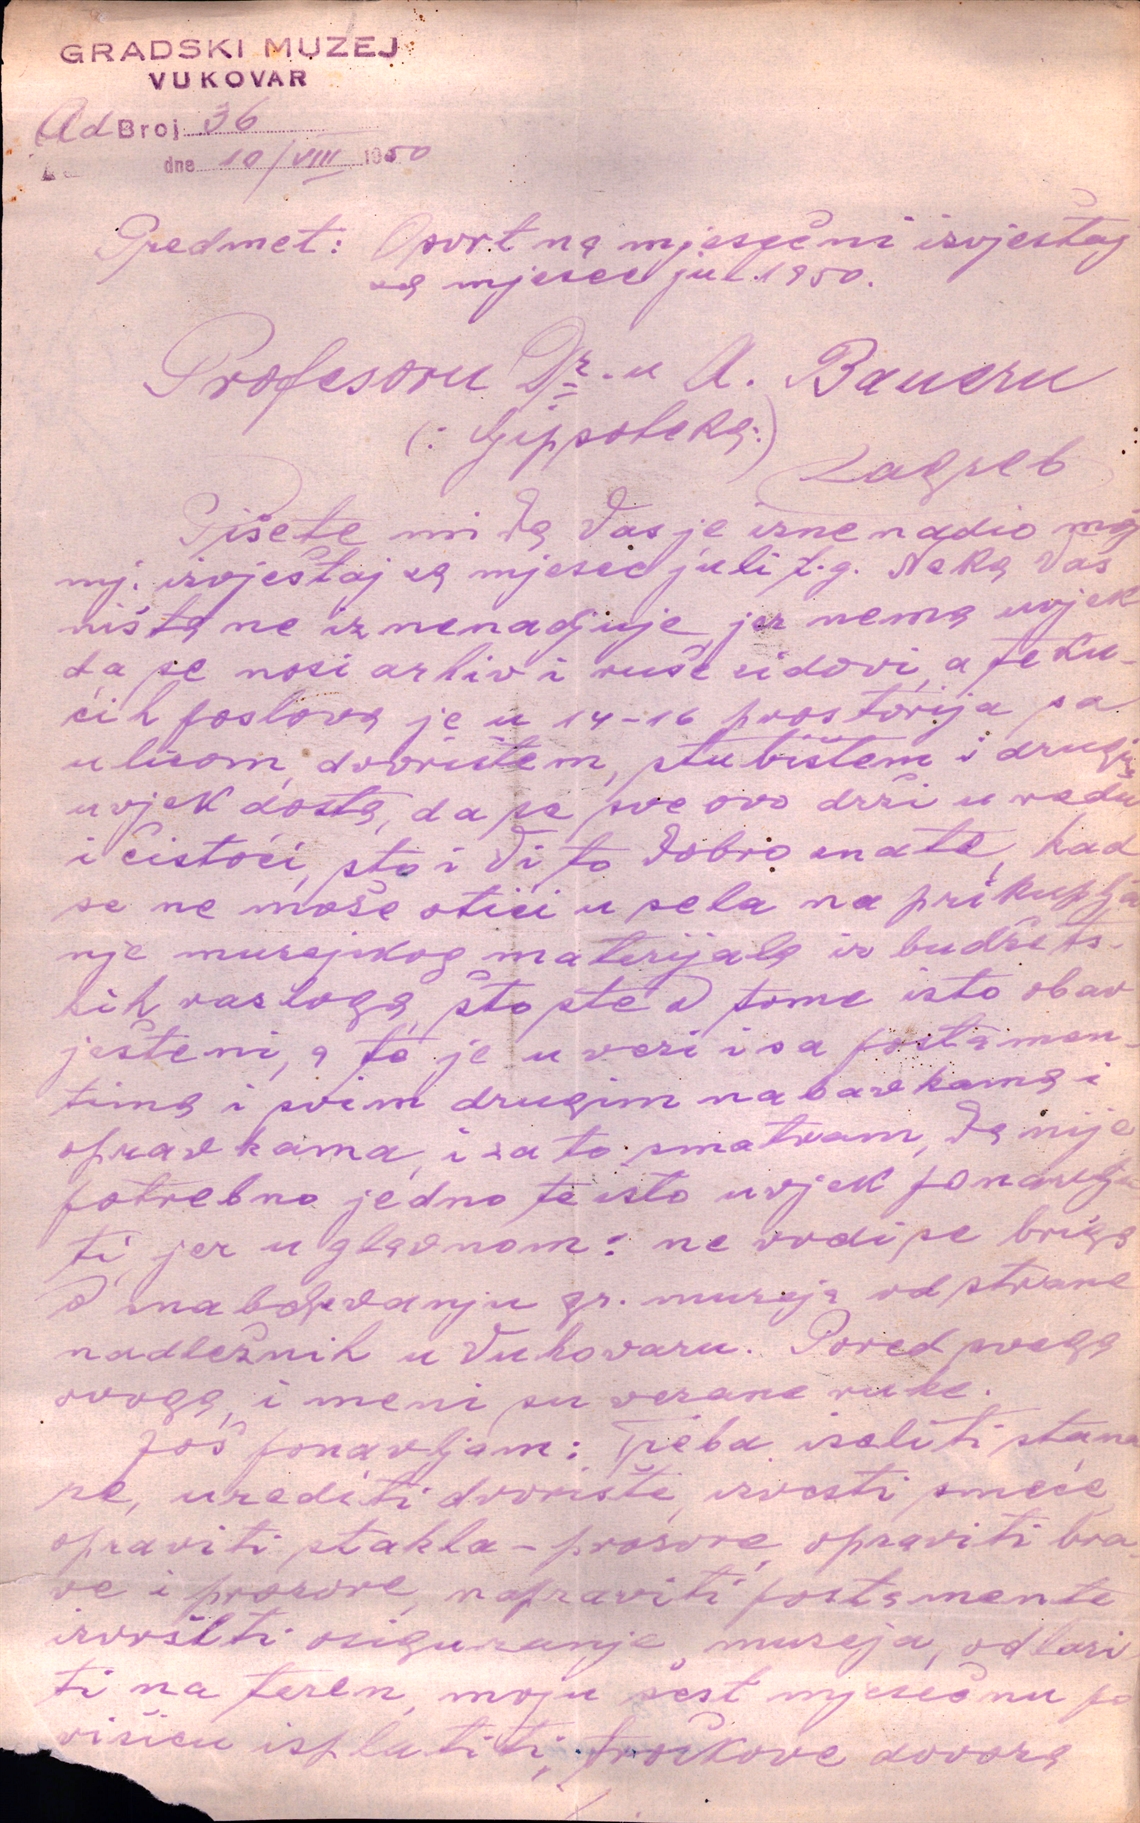 GRADSKI MUZEJ
VUKOVAR
Ad Broj 36
dne 10/VIII 1950
Predmet: Osvrt na mjesečni izvještaj
za mjesec jul. 1950.
Profesoru Dr.-u A. Baueru
(: Gipsoteka :)
Zagreb
Pišete mi da Vas je iznenadio moj
mj. izvještaj za mjesec juli t.g. Neka Vas
ništa ne iznenadjuje, jer nema uvjek
da se nosi arhiv i ruše zidovi, a teku-
ćih poslova je u 14-16 prostorija sa
ulicom, dvorištem, stubištem i drugim
uvjek dosta, da se sve ovo drži u redu
i čistoći, što i Vi to dobro znate, kad
se ne može otići u sela na prikuplja
nje muzejskog materijala iz budžets-
kih razloga, što ste o tome isto obav
ješteni, a to je u vezi i sa postamen-
tima i svim drugim nabavkama i
opravkama, i zato smatram, da nije
potrebno jedno te isto uvjek ponavlja
ti, jer uglavnom: ne vodi se briga
o snabdjevanju gr. muzeja od strane
nadležnih u Vukovaru. Pored svega
ovoga, i meni su vezane ruke.
Još ponavljam: Treba iseliti stana
re, urediti dvorište, izvesti smeće,
opraviti stakla - prozore, opraviti bra-
ve i prozore, napraviti postamente
izvršiti osiguranje muzeja, odlazi
ti na teren, moju šest mjesečnu po
višicu isplatiti, troškove dovoza